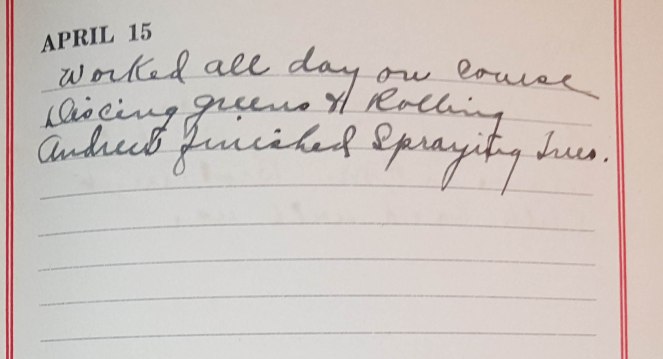 APRIL 15
Worked all day on course
Discing greens & Rolling
Andrews finished Spraying Trees.